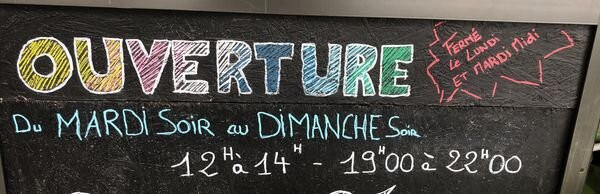 OUVERTURE
FERMÉ
LE LUNDI
ET MARDI Midi
DU MARDI SOIR au DIMANCHE Soir
12H à 14H - 19H00 à 22H00